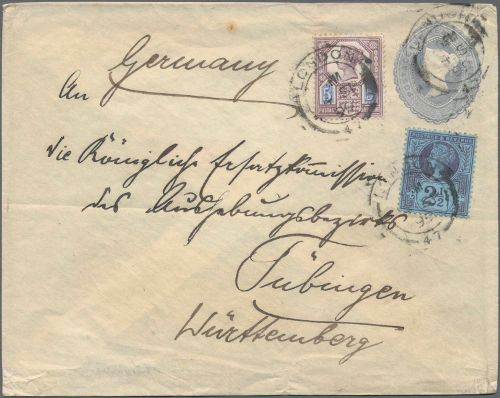 Germany
An
die Königliche Ersatzkommission
des Aushebungsbezirks
Tübingen
Württemberg
LONDON
47
5
2½
47